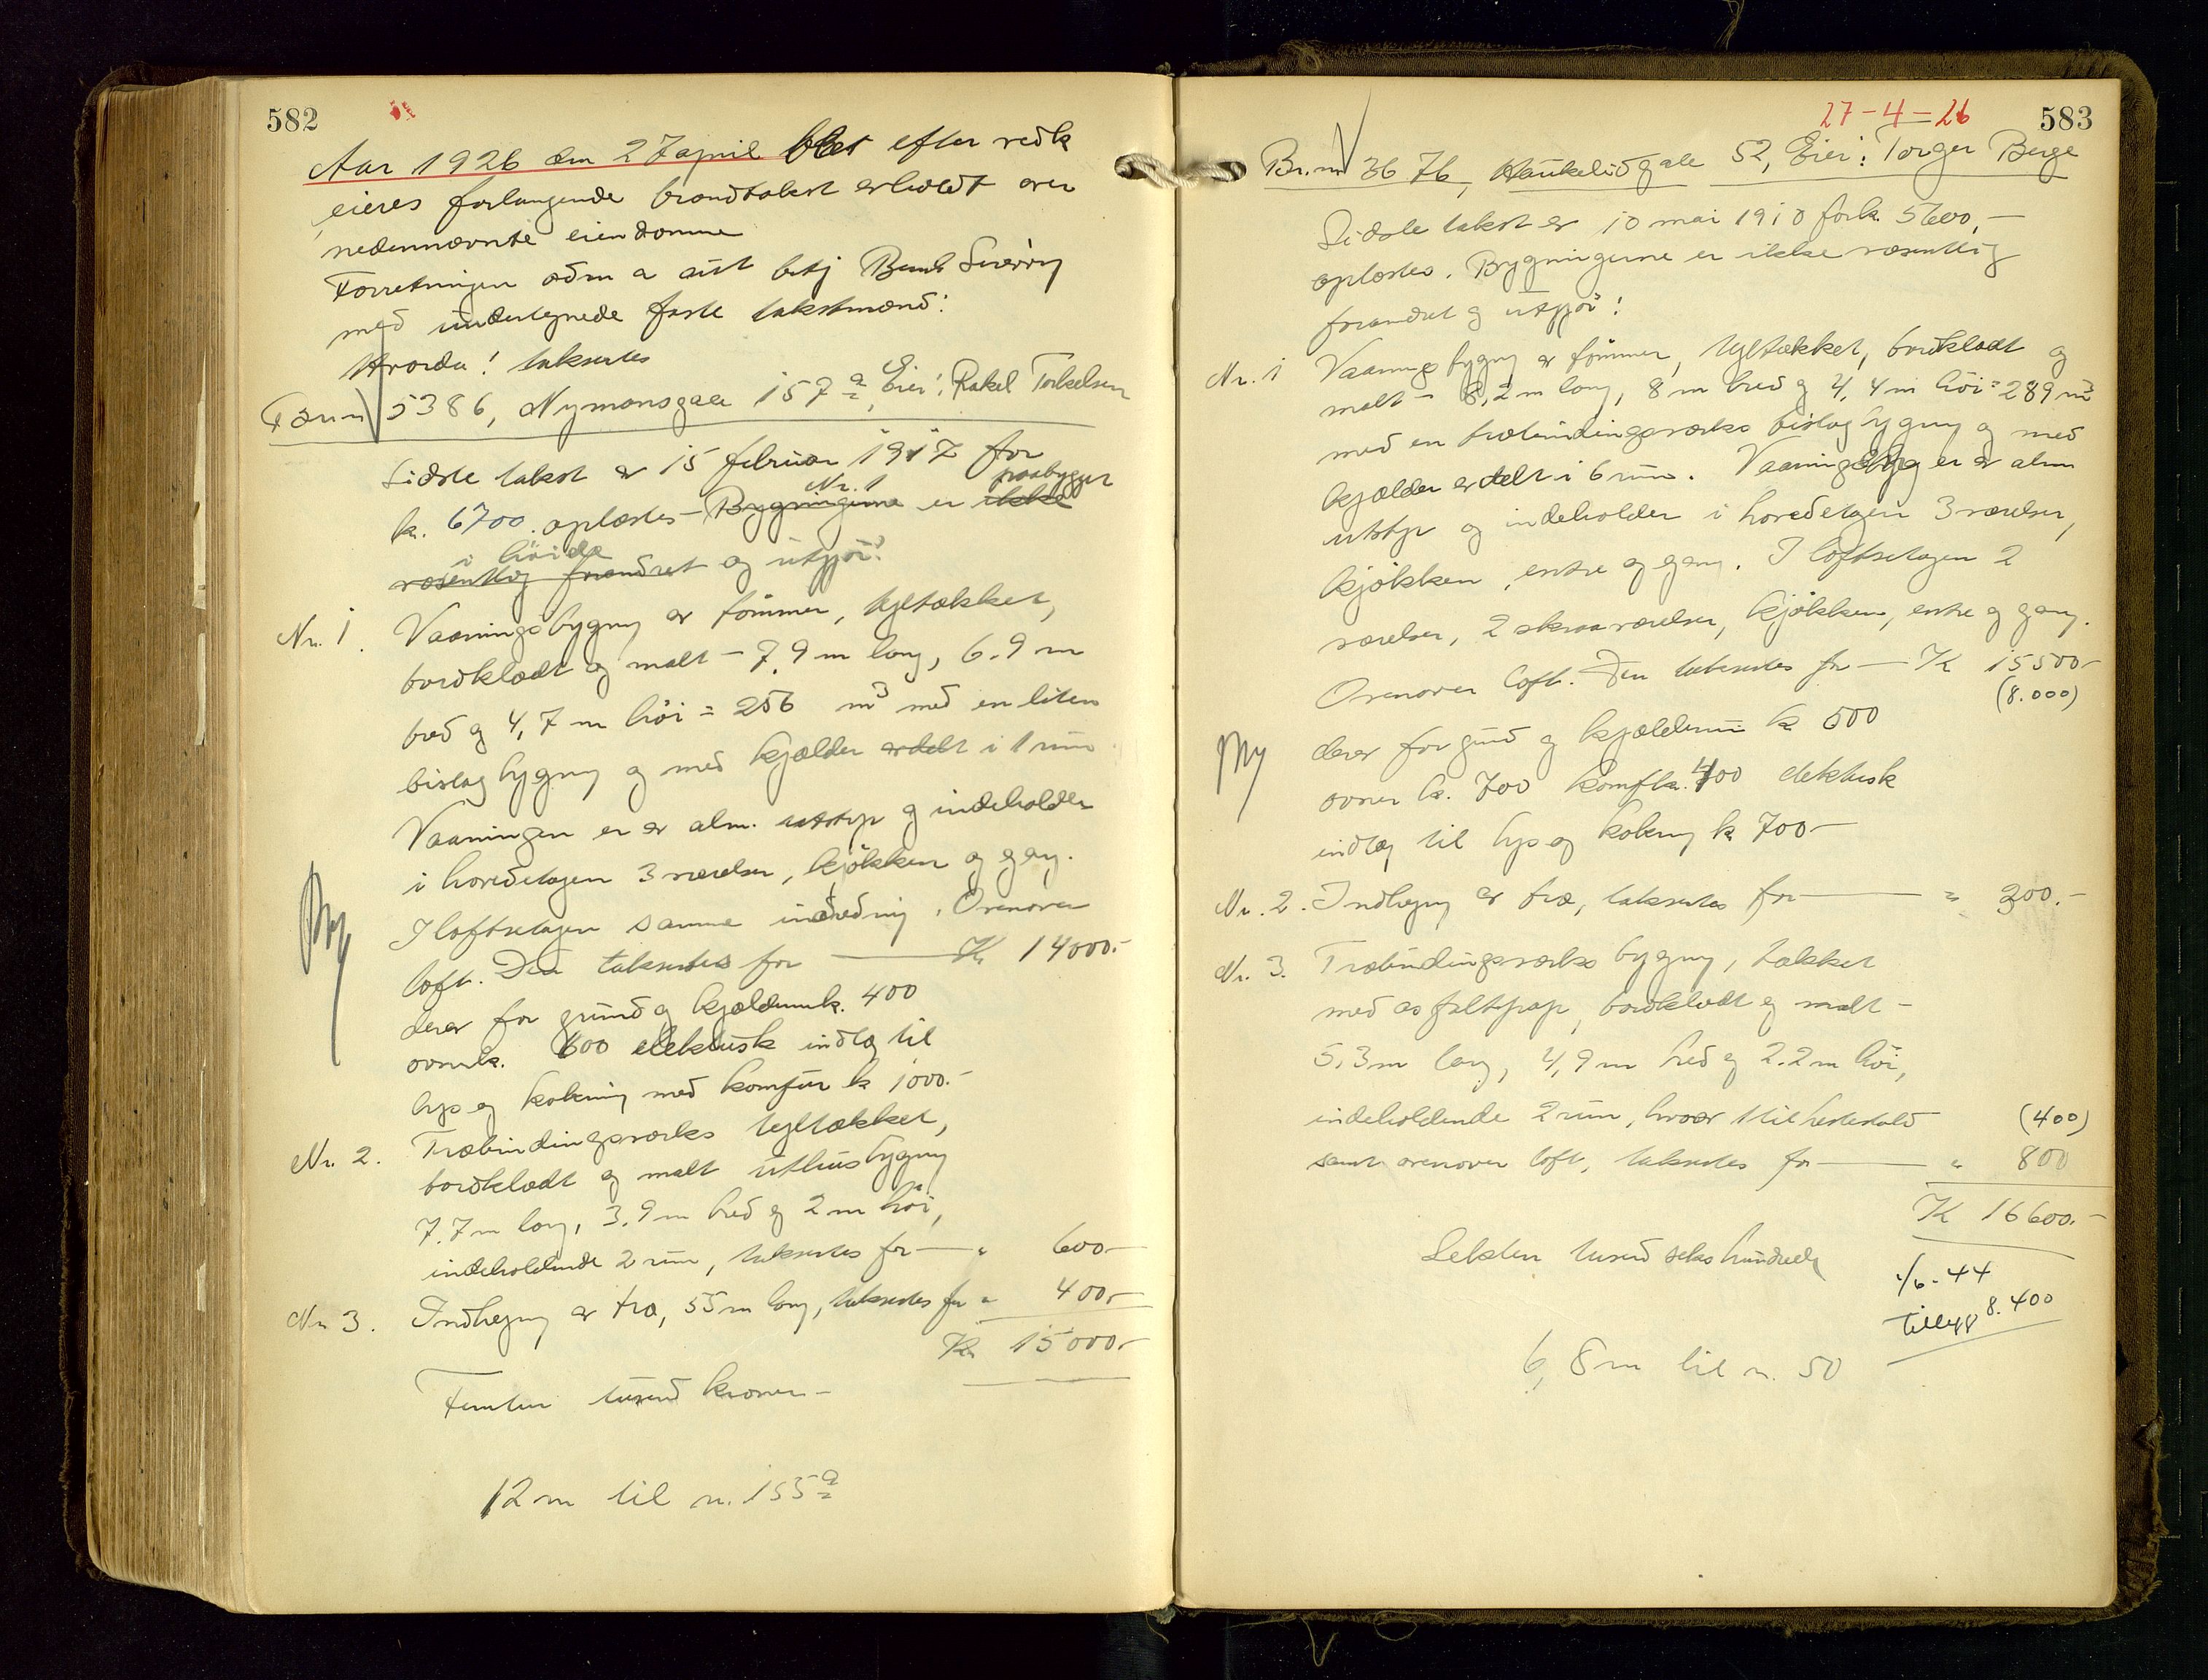 582
Aar 1926 den 27 april blev efter vedk
eieres forlangende brandtakst avholdt over
nedennævnte eiendomme
Forretningen adm av
med undertegnede faste takstmænd:
Hvorda! taksertes
5386, Nymansgate 157a, Eier: Rakel Torkelsen
Sidste takst av 15 februar 1917 for
Nr. 1 paabygget
kr. 6700. oplæstes - Bygningerne er ikke
i høide
væsentlig forandret og utgjør:
Nr. 1. Vaaningsbygng av tømmer, tegltækket,
bordklædt og malt - 7.9 m lang, 6.9 m
bred og 4,7 m høi = 256 m3 med en liten
bislagbygng og med kjælder avdelt i 1 rum
Vaaningen er av alm. utstyr og indeholder
i hovedetagen 3 værelser, kjøkken og gang.
I loftsetagen samme indredning. Ovenover
loft. Den taksertes for — Kr 14000.-
derav for grund og kjælderrum k. 400
ovner k. 600 elektrisk indlæg til
lys og kokning med komfur k 1000.-
Nr. 2. Træbindingsverks tegltækket,
bordklædt og malt uthusbygng
7.7 m lang, 3.9 m bred og 2 m høi,
indeholdende 2 rum, taksertes for — " 600.-
Nr 3. Indhegng av træ, 55 m lang, taksertes for " 400.-
Kr 15000.-
Femten tusend kroner -
12 m til n. 155a
27-4=26
583
Br.nr 3676, Haukelidgate 52, Eier: Torger Berge
Sidste takst av 10 mai 1910 for k. 5600,-
oplæstes. Bygningerne er ikke væsentlig
forandret og utgjør:
Nr. 1 Vaaningsbygng av tømmer, tegltækket, bordklædt og
malt - 8,2 m lang, 8 m bred og 4,4 m høi = 289 m3
med en træbindingsverks bislagbygng og med
kjælder avdelt i 6 rum. Vaaningsbyg er av alm
utstyr og indeholder i hovedetagen 3 værelser,
kjøkken, entre og gang. I loftsetagen 2
værelser, 2 skraaværelser, kjøkken, entre og gang.
Ovenover loft. Den taksertes for — K 15500.-
(8.000)
derav for grund og kjælderrum k 500
ovner k. 700 komf k. 400 elektrisk
indlæg til lys og kokng k 700.-
Nr. 2. Indhegng av træ, taksertes for — " 300.-
Nr. 3. Træbindingsverks bygng, tækket
med asfaltpap, bordklædt og malt -
5,3 m lang, 4,9 m bred og 2.2 m høi,
indeholdende 2 rum, hvorav 1 til hestestald (400)
samt ovenover loft, taksertes for — " 800
K 16600.-
Seksten tusend seks hundrede
1/6-44
Tillegg 8.400
6,8 m til n. 50